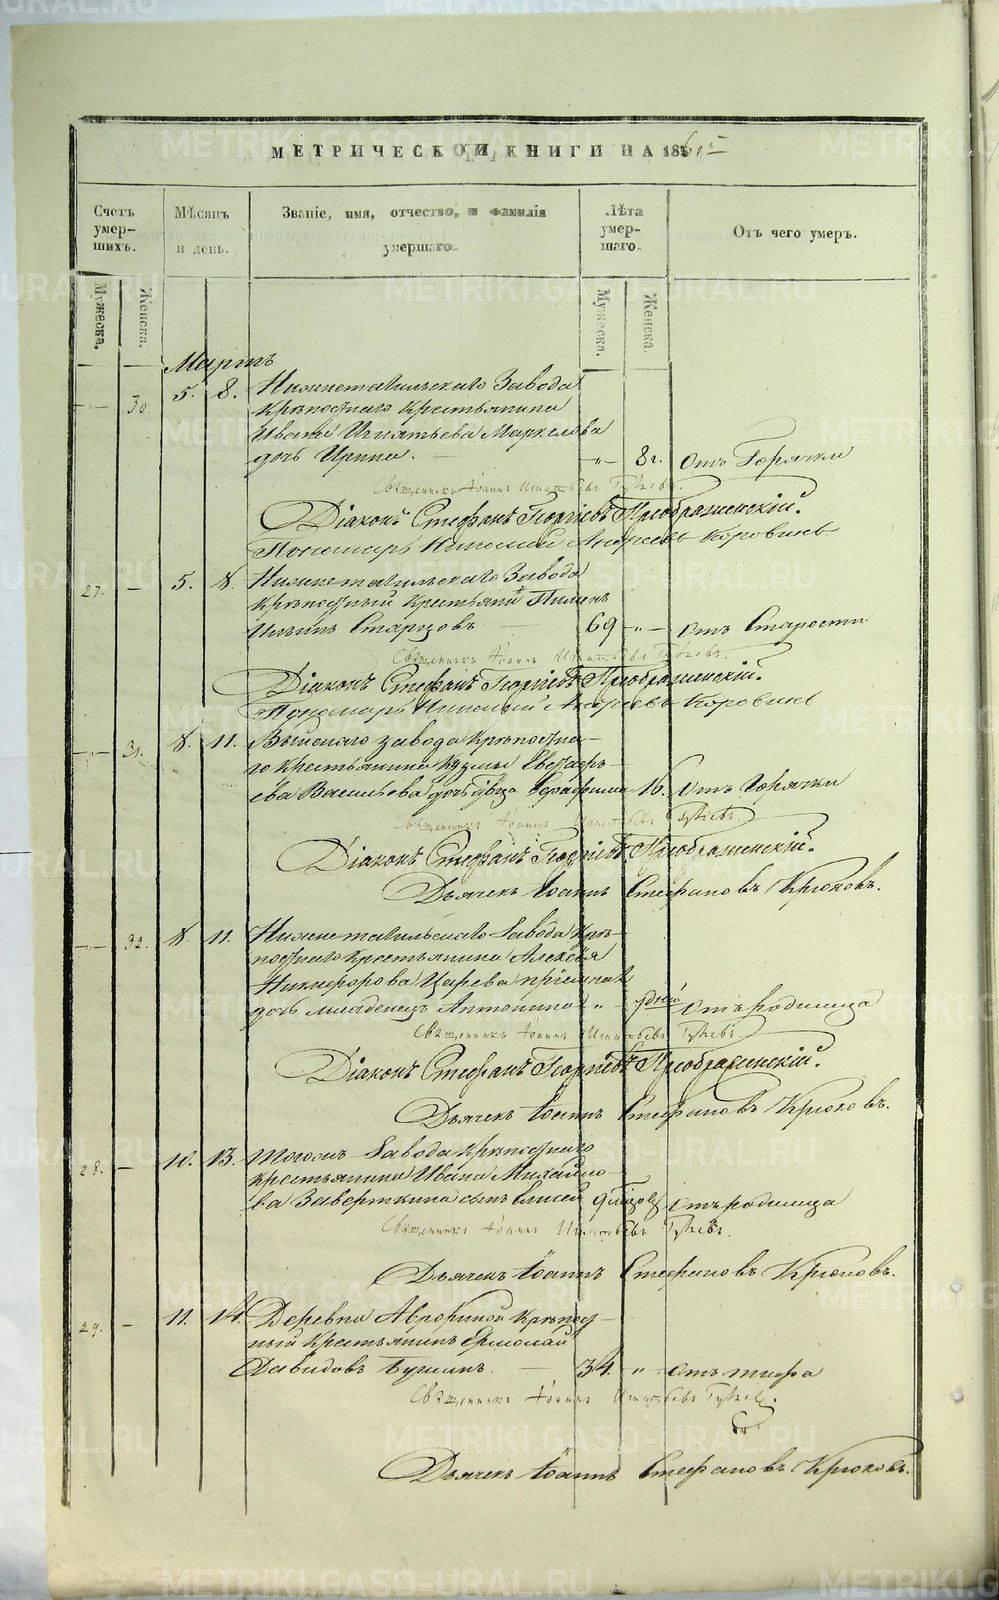 МЕТРИЧЕСКОЙ КНИГИ НА 18
Счетъ умер-шихъ.
Мѣсяцъ и день.
Званіе, имя, отчество, и фамилія умершаго.
Лѣта умер-шаго.
Отъ чего умеръ.
Мужеска. Женска. Мужеска. Женска.
Мартъ
— 30. 5. 8. Нижнетагильскаго Завода
Крѣпостнаго Крестьянина
Ивана Игнатьева Маркелова
дочь Ирина. — „ 3 г. отъ Горячки
Священникъ Іоаннъ Игнатьевъ
Діаконъ Стефанъ Георгіевъ Преображенскій.
Пономарь Николай Андреевъ Коровинъ
27. — 5. 8. Нижнетагильскаго Завода
Крѣпостный Крестьянинъ Пименъ
Ильинъ Старцовъ — 69 „ отъ Старости
Священникъ Іоаннъ Игнатьевъ
Діаконъ Стефанъ Георгіевъ Преображенскій.
Пономарь Николай Андреевъ Коровинъ
— 31. 8. 11. Выйскаго завода Крѣпостна-
го Крестьянина Кузмы
ева Васильева дочь дѣвица Серафима 16. отъ Горячки
Священникъ Іоаннъ Игнатьевъ
Діаконъ Стефанъ Георгіевъ Преображенскій.
Дьячекъ Іоаннъ Стефановъ Крюковъ.
— 32. 8. 11. Нижнетагильскаго Завода Крѣ-
постнаго Крестьянина Алексѣя
Никифорова Царева пріемная
дочь младенецъ Антонина „ 7 дней отъ родимца
Священникъ Іоаннъ Игнатьевъ
Діаконъ Стефанъ Георгіевъ Преображенскій.
Дьячекъ Іоаннъ Стефановъ Крюковъ.
28. — 10. 13. Тогожъ Завода Крѣпостнаго
Крестьянина Ивана Михайло-
ва Заверткина сынъ Елисей 9 отъ родимца
Священникъ Іоаннъ Игнатьевъ
Дьячекъ Іоаннъ Стефановъ Крюковъ.
29. — 11. 14. Деревни Аврориной Крѣпост-
ный Крестьянинъ Ермолай
Давидовъ — 34. „ отъ тифа
Священникъ Іоаннъ Игнатьевъ
Дьячекъ Іоаннъ Стефановъ Крюковъ.
METRIKI.GASO-URAL.RU